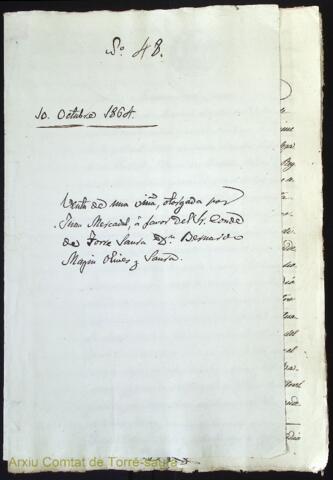 Nº 48.
10. Octubre 1864.
Venta de una viña, otorgada por
Juan Mercadal, á favor del Sr. Conde
de Torre Saura Dn. Bernardo
Magin Olives y Saura.
Arxiu Comtat de Torre-saura